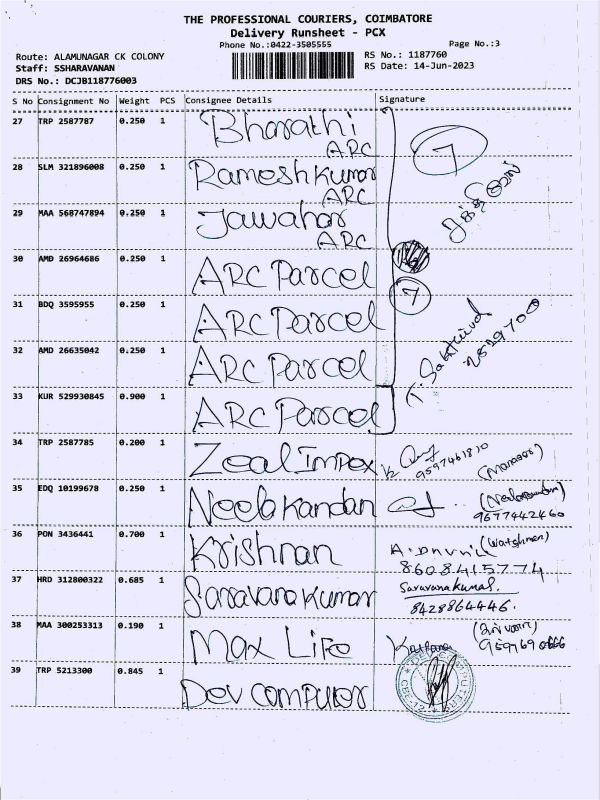 THE PROFESSIONAL COURIERS, COIMBATORE
Delivery Runsheet - PCX
Phone No.:0422-3505555
Page No.:3
Route: ALAMUNAGAR CK COLONY
RS No.: 1187760
Staff: SSHARAVANAN
RS Date: 14-Jun-2023
DRS No.: DCJB118776003
S No Consignment No Weight PCS Consignee Details Signature
27 TRP 2587787 0.250 1 Bharathi
ARC
7
28 SLM 321896008 0.250 1 Ramesh Kumar
ARC
29 MAA 568747894 0.250 1 Jawahar
ARC
30 AMD 26964686 0.250 1 ARC Parcel
7
31 BDQ 3595955 0.250 1 ARC Parcel
32 AMD 26635042 0.250 1 ARC Parcel
33 KUR 529930845 0.900 1 ARC Parcel
34 TRP 2587785 0.200 1 Zeal Impex
9597461810
(Manager)
35 EDQ 10199678 0.250 1 Neelakandan
9677442460
36 PON 3436441 0.700 1 Krishnan
(Watchman)
8608415774
37 HRD 312800322 0.685 1 Saravana Kumar Saravanakumar
8428864446.
38 MAA 300253313 0.190 1 Max Life
39 TRP 5213300 0.845 1 Dev Computer